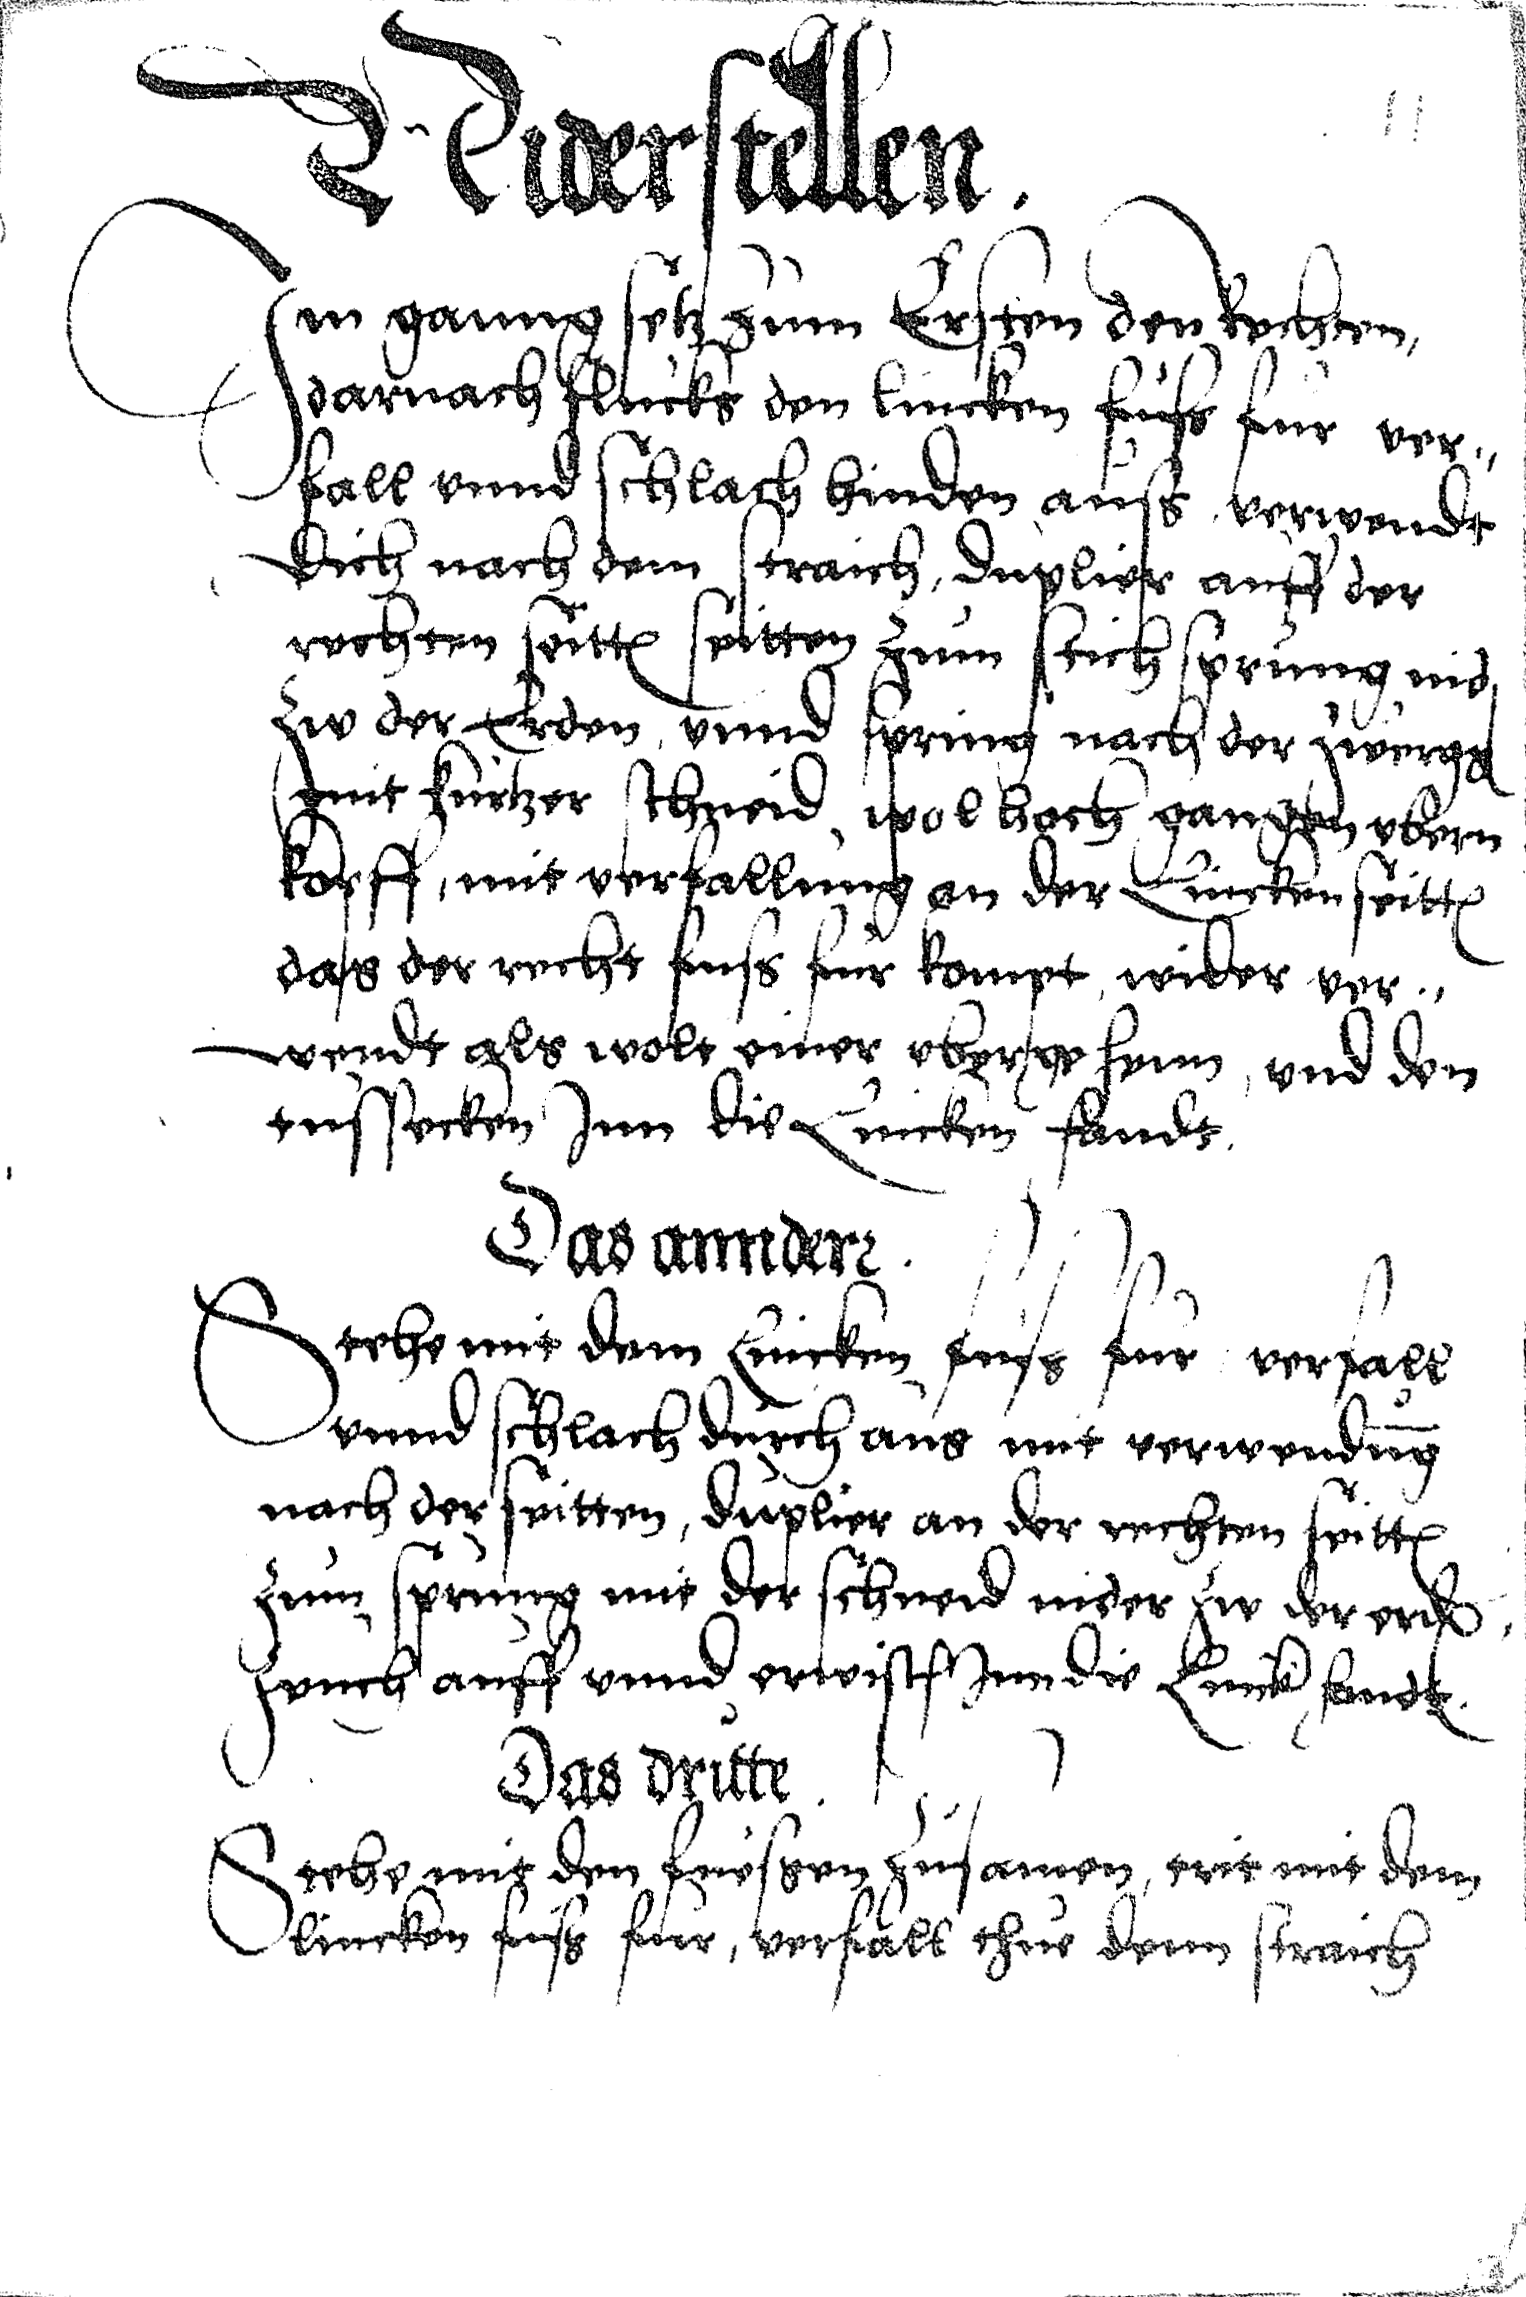 Widerstellen.
11
Im ganng setz zum Ersten den rechten,
darnach flucks den lincken fuß fur ver„
fall vnnd schlach hinden auß verwendt
dich nach dem straich, duplier auff der
rechten seitt seitten zum stich sprung nid
zu der Erden, vnnd spring nach der zwerg
mit kurtzer schneid, wol hoch ganngen vbern
kopff, mit verfallung an der Lincken seitt
das der recht fuß fur kompt, wider ver„
wendt als wolt einer, vnd den
tussecken Inn die Lincken handt.
Das annder.
Stehe mit dem Lincken fuß fur verfall
vnnd schlach durch aus mit verwendūg
nach der seitten, duplier an der rechten seitt
zum sprung mit der schneid nider zu der erd,
zeuch auff vnnd erwisch Inn die Linck handt.
Das dritte.
Stehe mit den fuessen zusamen, trit mit dem
lincken fuß fur, verfall thue denn straich